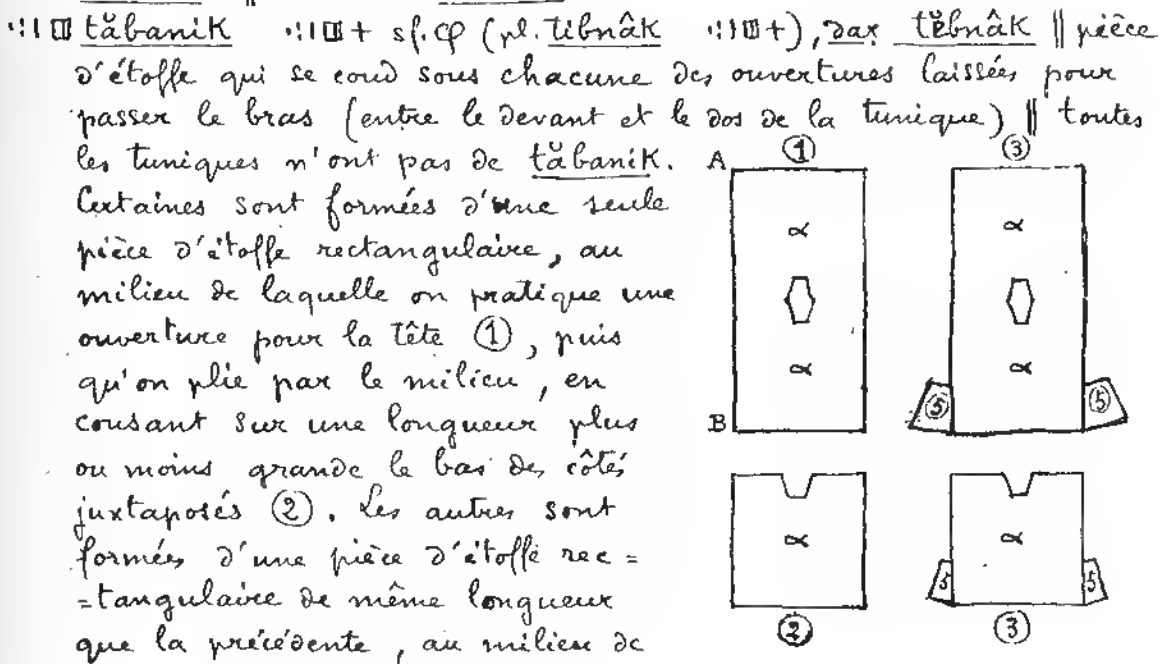 ⵿ⵗⵏⴱ tăbanik̤ ⵗⵏⴱⵜ sf. φ (pl. tibnâk ⵗⵏⴱⵜ), dax tĕbnâk || pièce
d'étoffe qui se coud sous chacune des ouvertures laissées pour
passer le bras (entre le devant et le dos de la tunique) || toutes
les tuniques n'ont pas de tăbanik.
Certaines sont formées d'une seule
pièce d'étoffe rectangulaire, au
milieu de laquelle on pratique une
ouverture pour la tête ①, puis
qu'on plie par le milieu, en
cousant sur une longueur plus
ou moins grande le bas des côtés
juxtaposés ②. Les autres sont
formées d'une pièce d'étoffe rec=
=tangulaire de même longueur
que la précédente, au milieu de
① ③
A
α α
α α
⑤ ⑤
B
α α
5 5
② ③